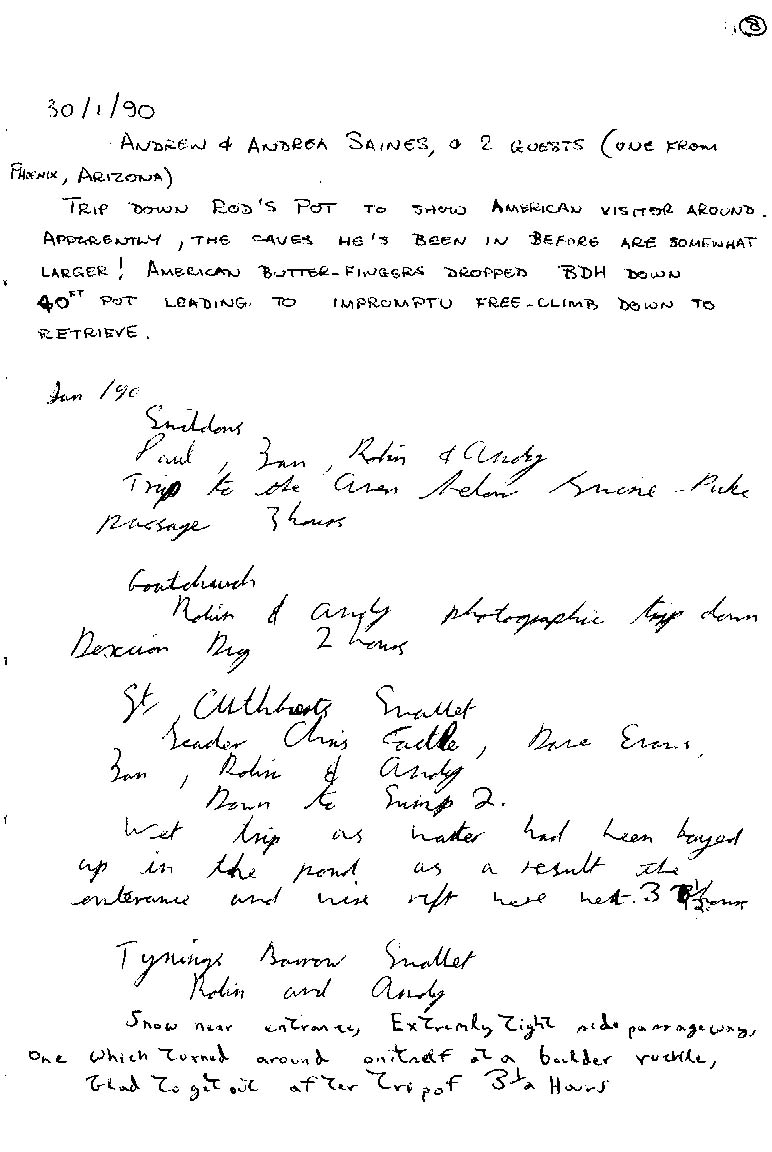 8
30/1/90
ANDREW & ANDREA SAINES, & 2 GUESTS (ONE FROM
PHOENIX, ARIZONA)
TRIP DOWN ROD'S POT TO SHOW AMERICAN VISITOR AROUND.
APPARENTLY, THE CAVES HE'S BEEN IN BEFORE ARE SOMEWHAT
LARGER! AMERICAN BUTTER-FINGERS DROPPED BDH DOWN
40FT POT LEADING TO IMPROMPTU FREE-CLIMB DOWN TO
RETRIEVE.
Jan /90
Swildons
Paul, Zan, Robin & Andy
Trip to the Aven below Puke
passage 3 hours
Goatchurch
Robin & Andy photographic trip down
Dexion Dig 2 hours
St, Cuthberts Swallet
Leader Chris, Dave Evans,
Zan, Robin & Andy
Down to Sump 2.
Wet trip as water had been bayed
up in the pond as a result the
enterance and wire rift were wet. 3 1/2 hours
Tynings Barrow Swallet
Robin and Andy
Snow near entrance, Extremly Tight side passageways,
One which Turned around on itself at a boulder ruckle,
Glad To get out after Trip of 3 1/2 Hours